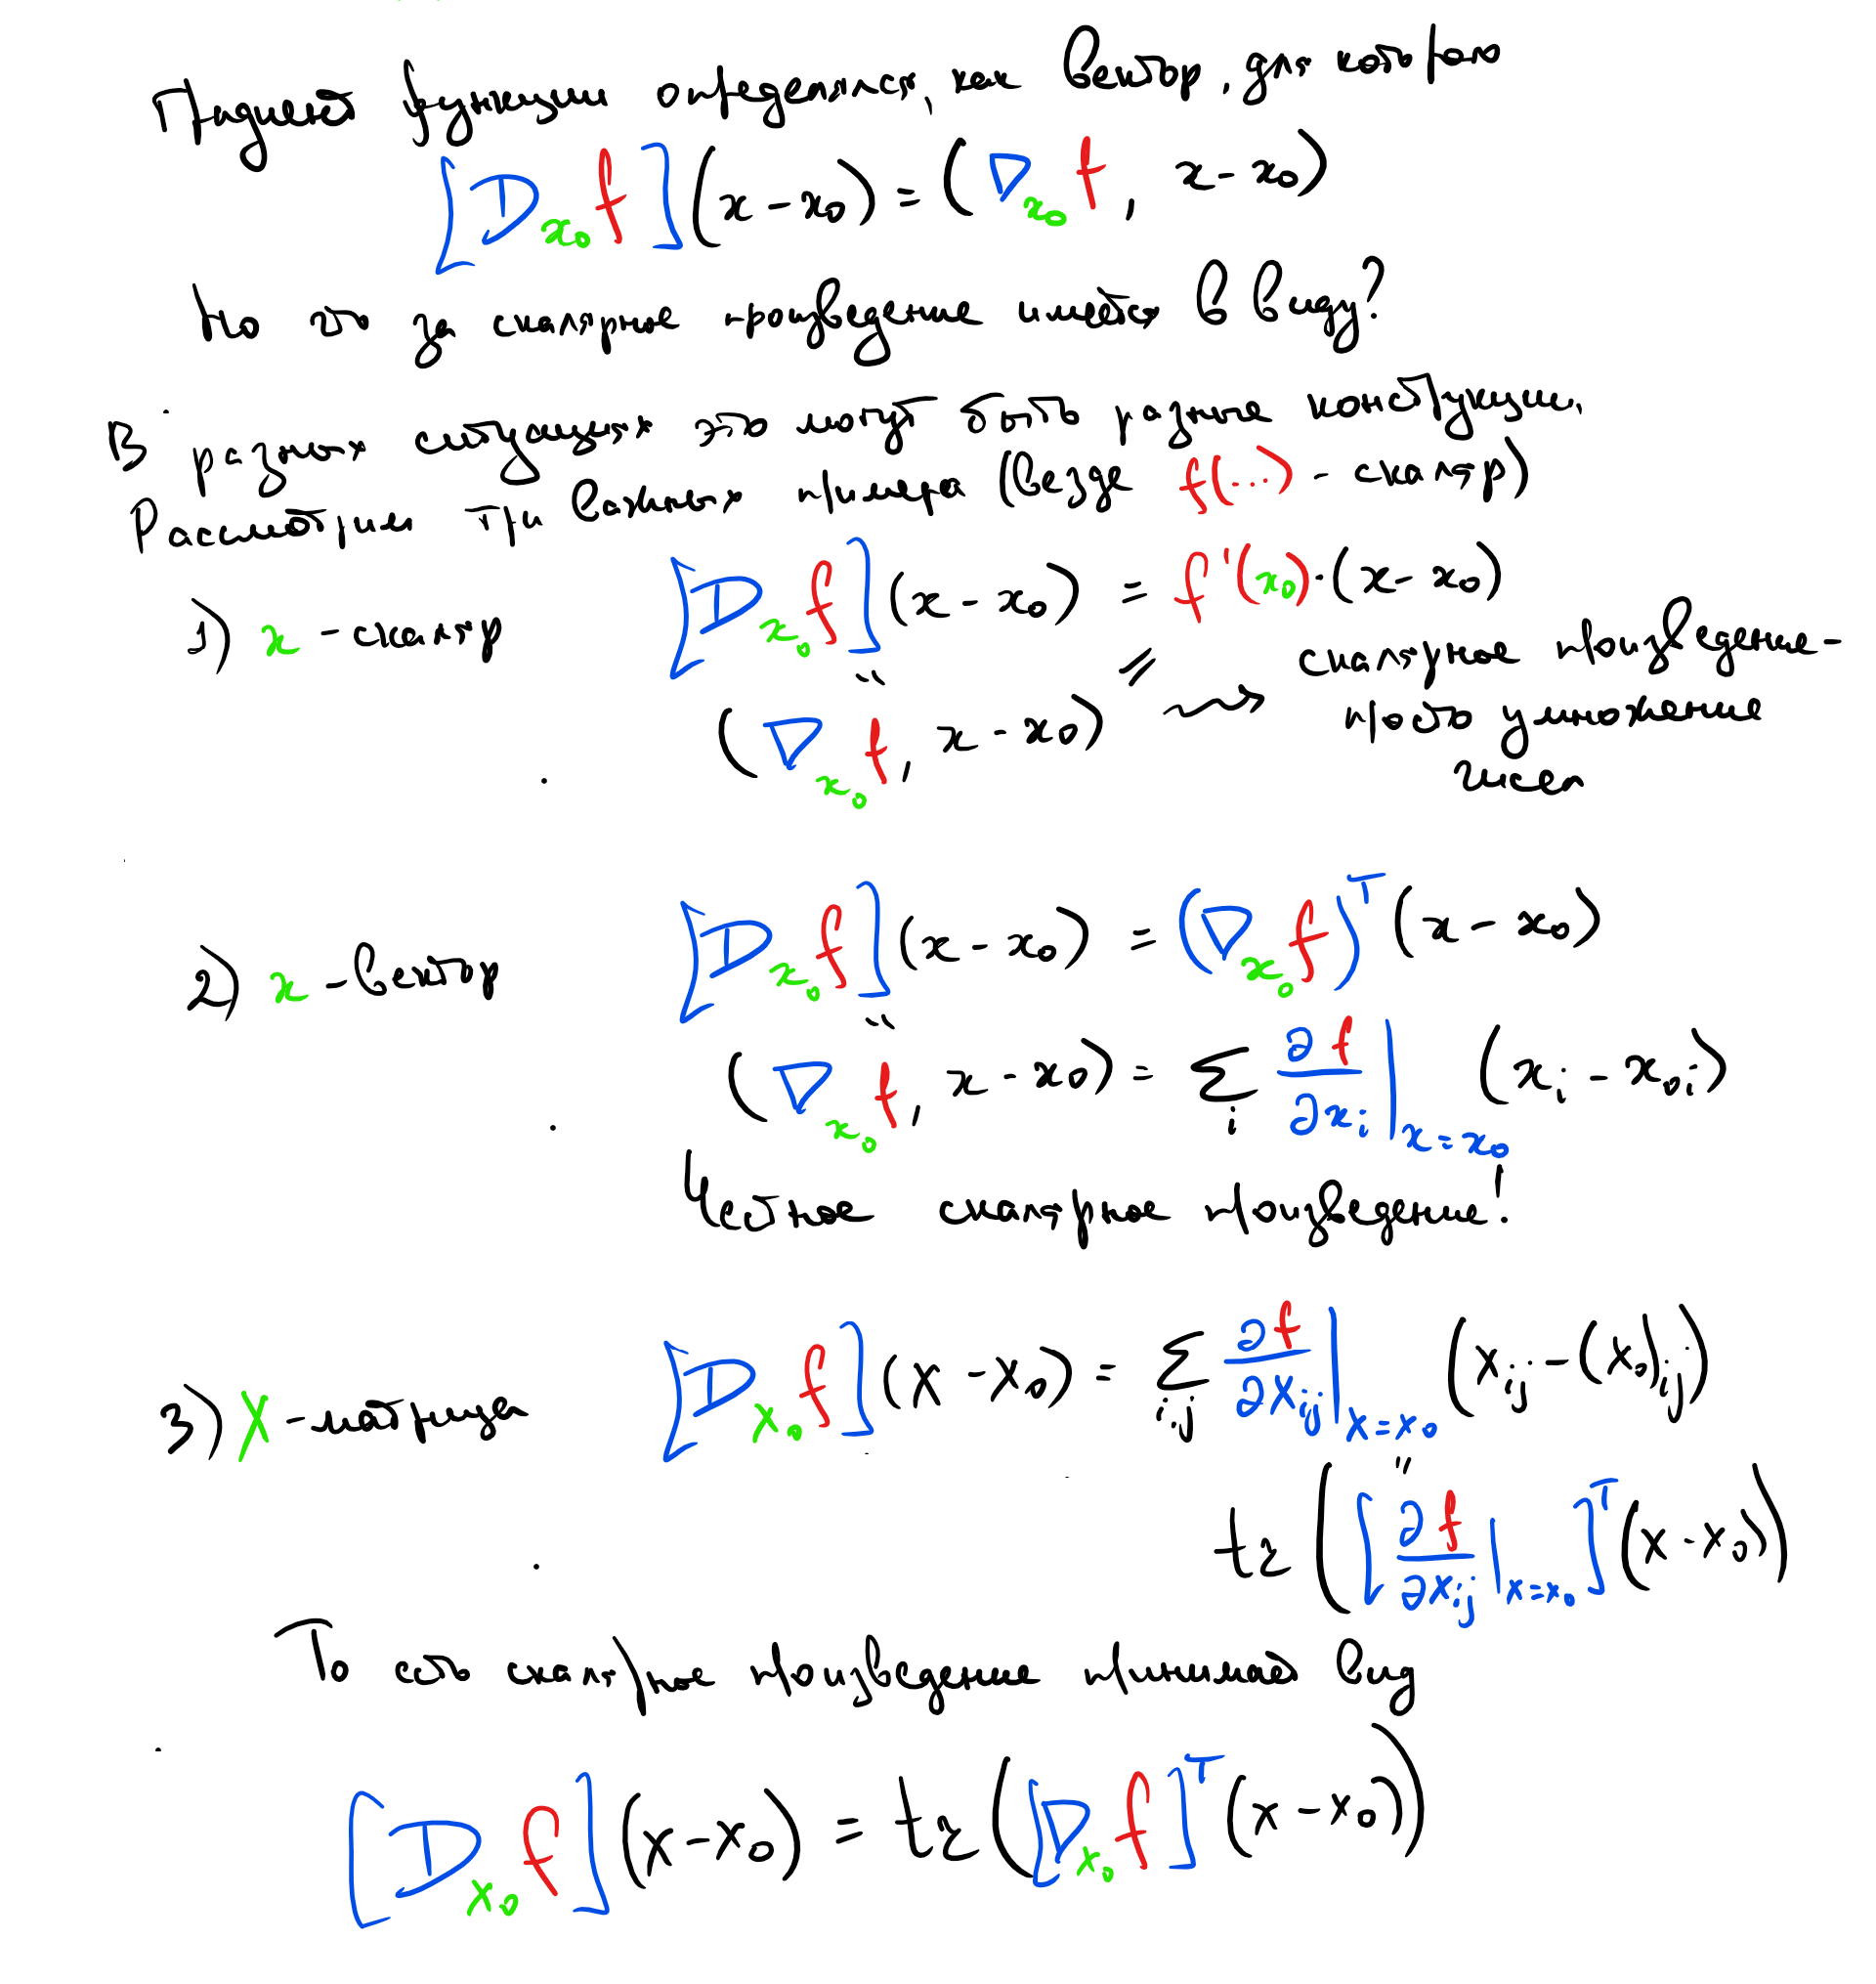 Градиент функции определялся, как вектор, для которого
[D_{x_0} f](x - x_0) = (∇_{x_0} f, x - x_0)
Но что за скалярное произведение имеется в виду?
В разных ситуациях это могут быть разные конструкции.
Рассмотрим три важных примера (везде f(...) - скаляр)
1) x - скаляр [D_{x_0} f](x - x_0) = f'(x_0)·(x - x_0)
(∇_{x_0} f, x - x_0) = ⇝ скалярное произведение -
просто умножение
чисел
2) x - вектор [D_{x_0} f](x - x_0) = (∇_{x_0} f)^T (x - x_0)
(∇_{x_0} f, x - x_0) = Σ_i ∂f/∂x_i |_{x = x_0} (x_i - x_{0i})
Честное скалярное произведение!
3) X - матрица [D_{X_0} f](X - X_0) = Σ_{i,j} ∂f/∂X_{ij} |_{X = X_0} (X_{ij} - (X_0)_{ij})
tr([∂f/∂X_{ij} |_{X = X_0}]^T (X - X_0))
То есть скалярное произведение принимает вид
[D_{X_0} f](X - X_0) = tr([∇_{X_0} f]^T (X - X_0))